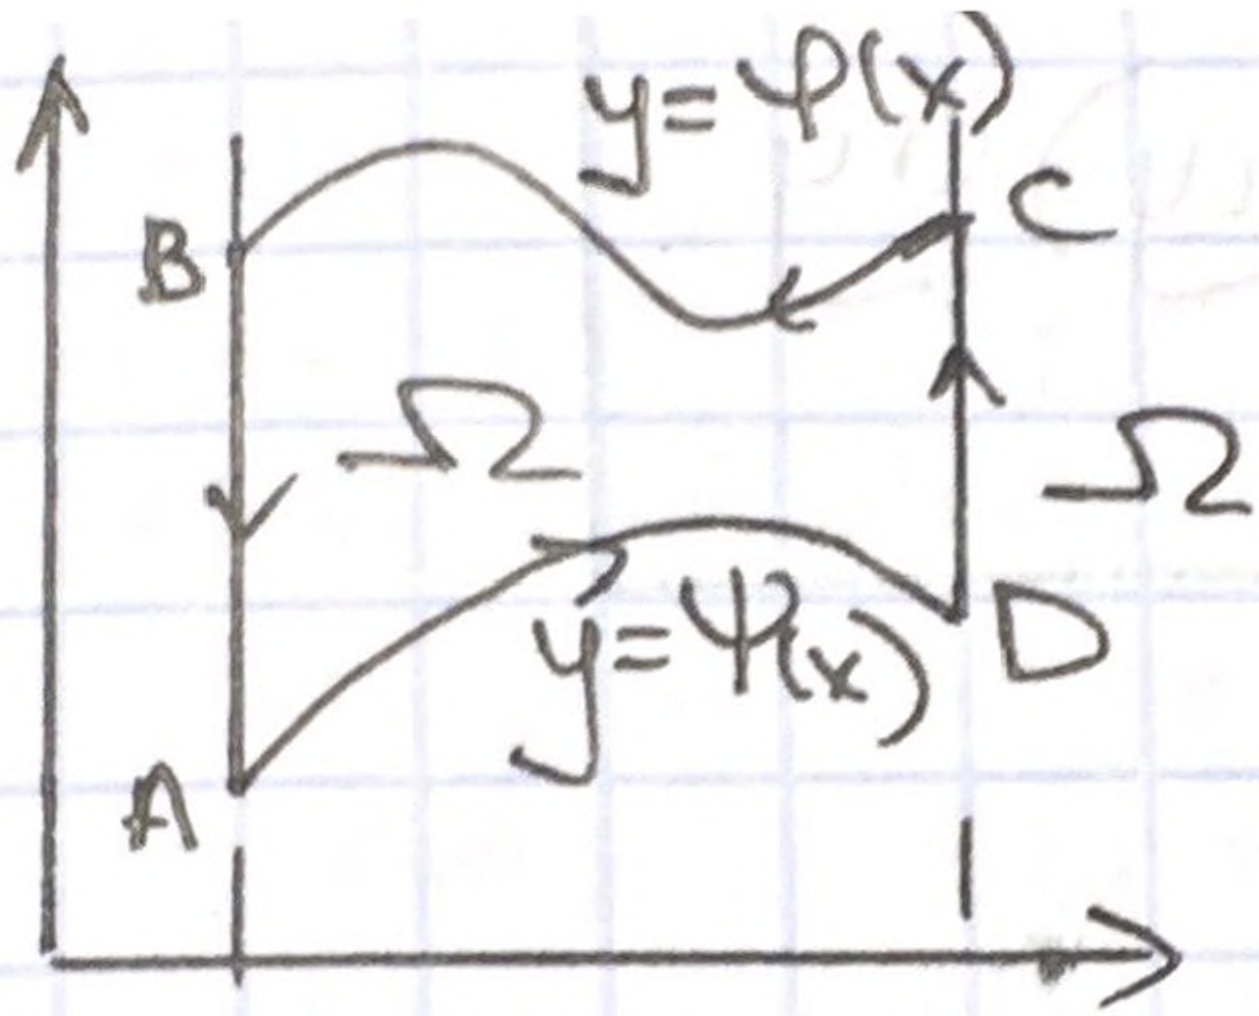 y=φ(x)
B
C
Ω
Ω
y=ψ(x)
D
A